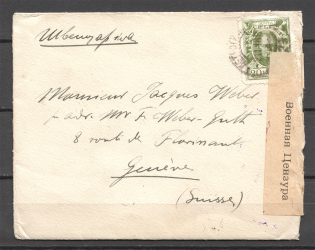 Швейцарія
Monsieur Jacques Weber
adr. Mr F. Weber-
8 route de Florissant
Genève
(Suisse)
Военная Цензура